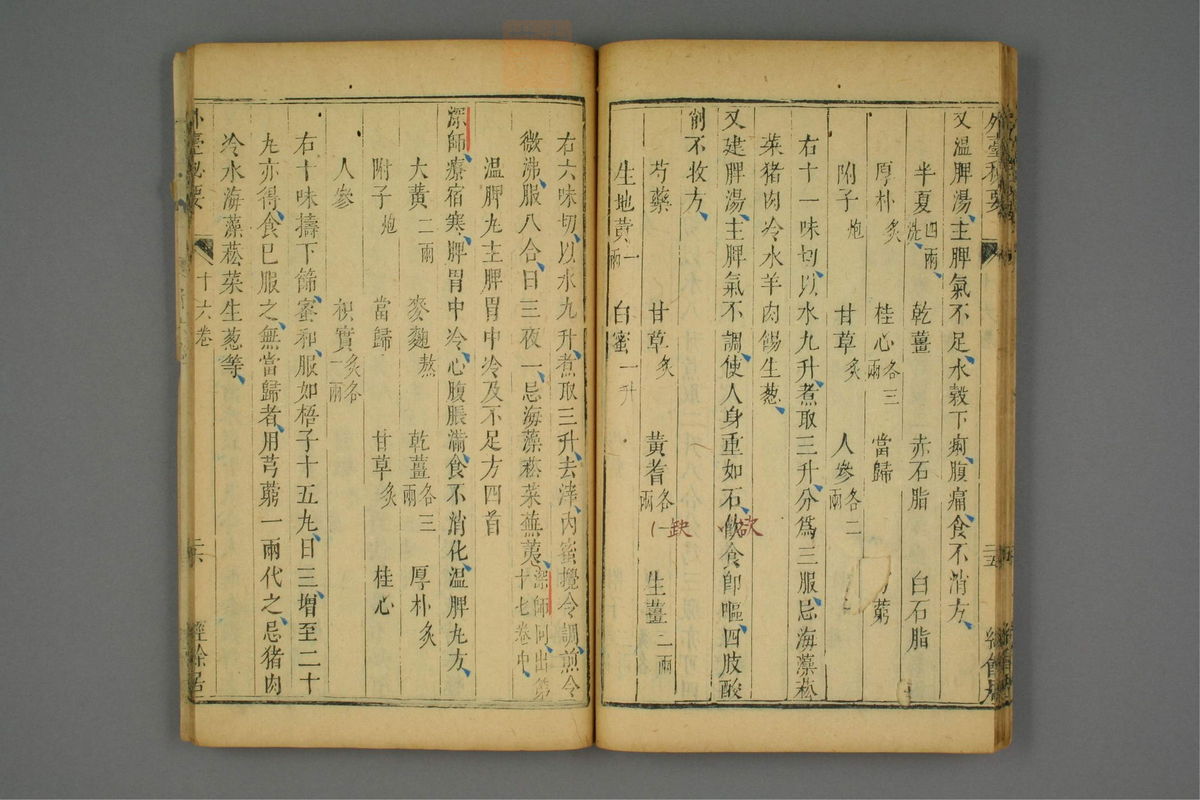 外臺秘要
又溫脾湯主脾氣不足水穀下痢腹痛食不消方
半夏四兩洗 乾薑 赤石脂 白石脂
厚朴炙 桂心各三兩 當歸 藭
附子炮 甘草炙 人參各二兩
右十一味切以水九升煮取三升分爲三服忌海藻菘
菜猪肉冷水羊肉餳生葱
又建脾湯主脾氣不調使人身重如石飲食卽嘔四肢酸
削不收方
欲
一缺
芍藥 甘草炙 黃耆各兩 生薑二兩
生地黃一兩 白蜜一升
右六味切以水九升煮取三升去滓內蜜攪令調煎令
微沸服八合日三夜一忌海藻菘菜蕪荑深師同出第十七卷中
溫脾丸主脾胃中冷及不足方四首
深師療宿寒脾胃中冷心腹脹滿食不消化溫脾丸方
大黃二兩 麥麴熬 乾薑各三兩 厚朴炙
附子炮 當歸 甘草炙 桂心
人參 枳實炙各一兩
右十味擣下篩蜜和服如梧子十五丸日三增至二十
丸亦得食已服之無當歸者用芎藭一兩代之忌猪肉
冷水海藻菘菜生葱等
外臺秘要 十六卷 二六 經餘居